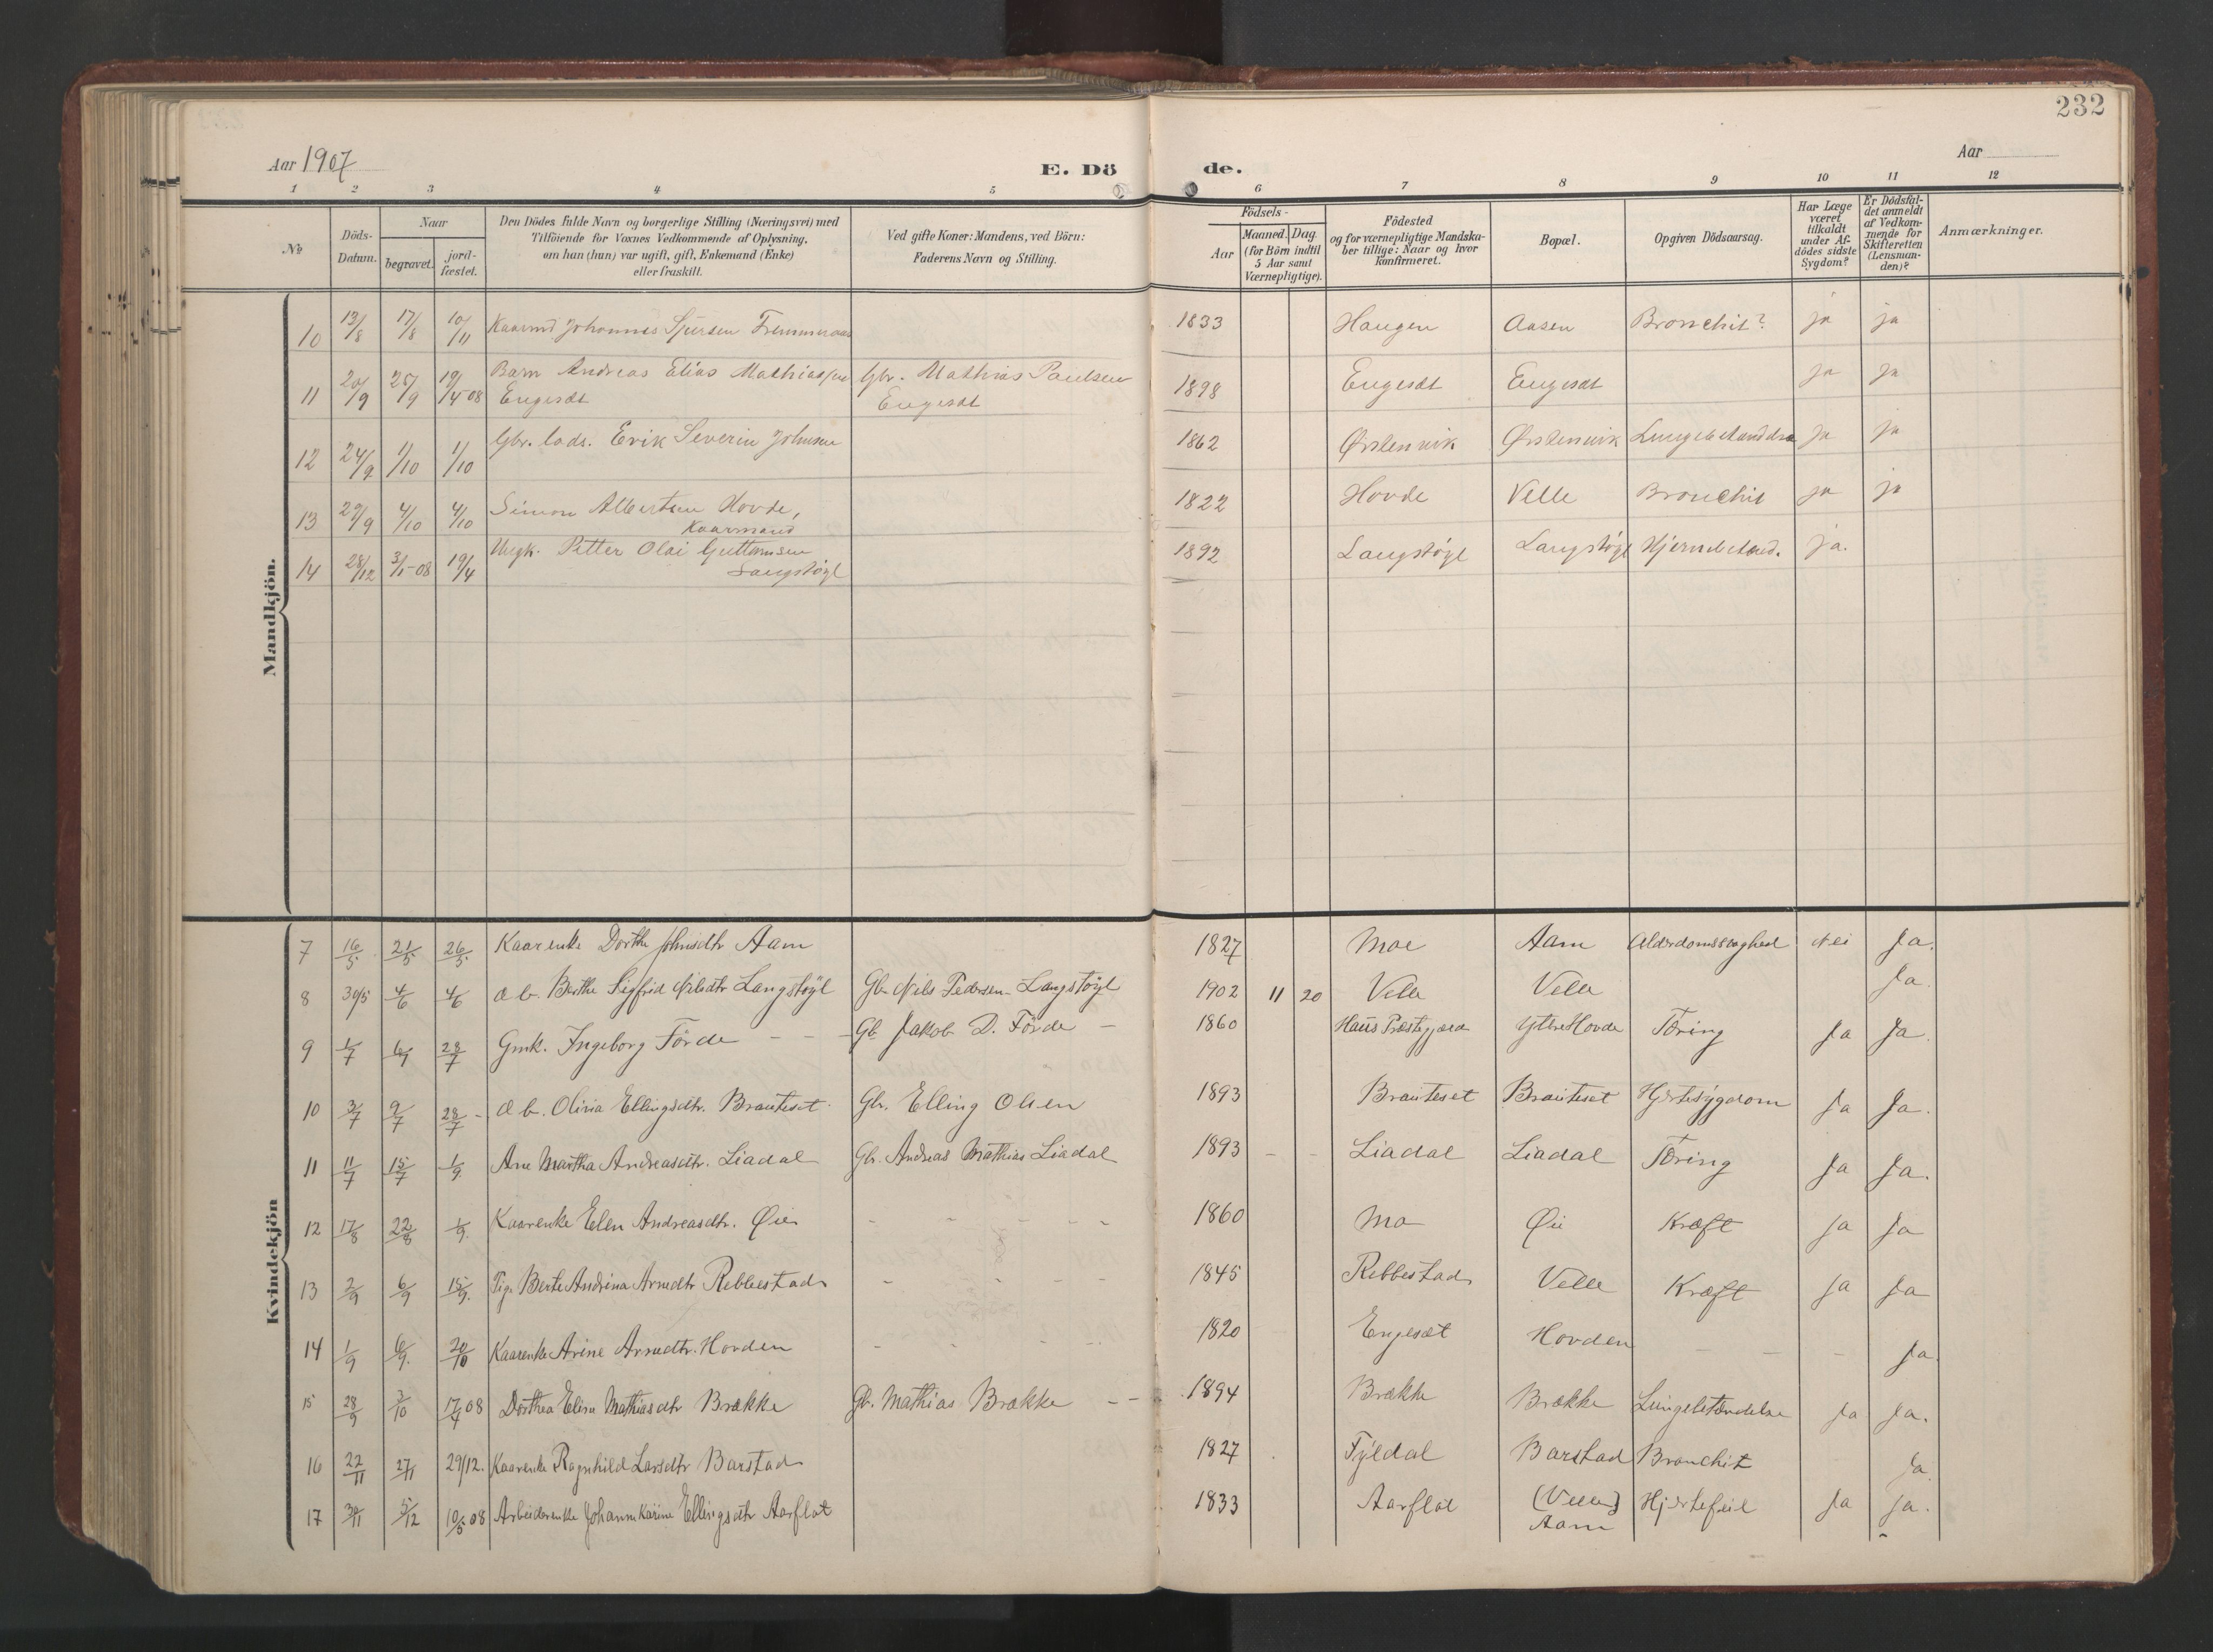 232
Aar 1907
E. Dö de.
Aar
1 2 3 4 5 6 7 8 9 10 11 12
No
Döds-
Datum.
Naar
begravet.
jord-
fæstet.
Den Dödes fulde Navn og borgerlige Stilling (Næringsvei) med
Tilföiende for Voxnes Vedkommende af Oplysning,
om han (hun) var ugift, gift, Enkemand (Enke)
eller fraskilt.
Ved gifte Koner: Mandens, ved Börn:
Faderens Navn og Stilling.
Födsels-
Aar
Maaned. Dag
(for Börn indtil
5 Aar samt
Værnepligtige).
Födested
og for værnepligtige Mandska-
ber tillige: Naar og hvor
konfirmeret.
Bopæl.
Opgiven Dödsaarsag.
Har Læge
været
tilkaldt
under Af-
dödes sidste
Sygdom?
Er Dödsfal-
det anmeldt
af Vedkom-
mende for
Skifteretten
(Lensman-
den)?
Anmærkninger.
Mandkjön.
10 13/8 17/8 10/11 Kaarmd Johannes Sjursen 1833 Haugen Aasen Bronchit? ja ja
11 20/9 25/9 19/4 08 Barn Andreas Elias Mathiassen Gbr. Mathias Paulsen 1898 Engesæt Engesæt ja ja
Engesæt Engesæt
12 24/9 1/10 1/10 Gbr. Erik Severin Johnsen 1862 Ørstenvik Ørstenvik ja ja
13 29/9 4/10 4/10 Simon Albertsen Hovde, 1822 Hovde Velle Bronchit ja ja
Kaarmand
14 28/12 3/1-08 19/4 Ungk. Petter Olai Guttormsen 1892 Langstøyl Langstøyl Hjernebetænd. ja.
Langstøyl
Kvindekjön
7 16/5 21/5 26/5 Kaarenke Dorthe Johnsdtr Aam 1827 Moe Aam Alderdomssvaghed Nei Ja.
8 30/5 4/6 4/6 d b. Berthe Sigfrid Nilsdtr Langstøyl Gb Nils Pedersen Langstøyl 1902 11 20 Velle Velle Ja.
9 1/7 6/7 28/7 Gmk. Ingeborg Förde - - - Gb Jakob D. Förde - 1860 Haus Præstegjæld Ytre Hovde Tæring Ja Ja.
10 3/7 9/7 28/7 - d b. Olivia Ellingsdtr. Brauteset Gbr. Elling Olsen 1893 Brauteset Brauteset Hjertesygdom Ja Ja.
11 11/7 15/7 1/9 Ane Martha Andreasdtr. Liadal Gbr. Andreas Mathias Liadal 1893 - - Liadal Liadal Tæring Ja Ja.
12 17/8 22/8 1/9 Kaarenke Elen Andreasdtr. Øie - - - - - 1860 Mo Øie Kræft Ja Ja
13 2/9 6/9 15/9 Pige Berte Andrina Arnedtr Rebbestad - - - - 1845 Rebbestad Velle Kræft Ja Ja
14 1/9 6/9 20/10 Kaarenke Arine Arnedtr. Hovden - - - - 1820 Engesæt Hovden - - - Ja.
15 28/9 3/10 17/4 08 Dorthea Elise Mathiasdtr Brække Gb. Mathias Brække - - 1894 Brække Brække Lungebetændelse Ja Ja.
16 22/11 27/11 29/12. Kaarenke Ragnhild Larsdtr Barstad 1827 Fyldal Barstad Bronchit Ja.
17 30/11 5/12 10/5 08 Arbeiderenke Johanne Karine Ellingsdtr Aarflot 1833 Aarflot (Velle) Hjertefeil Ja Ja.
Aam